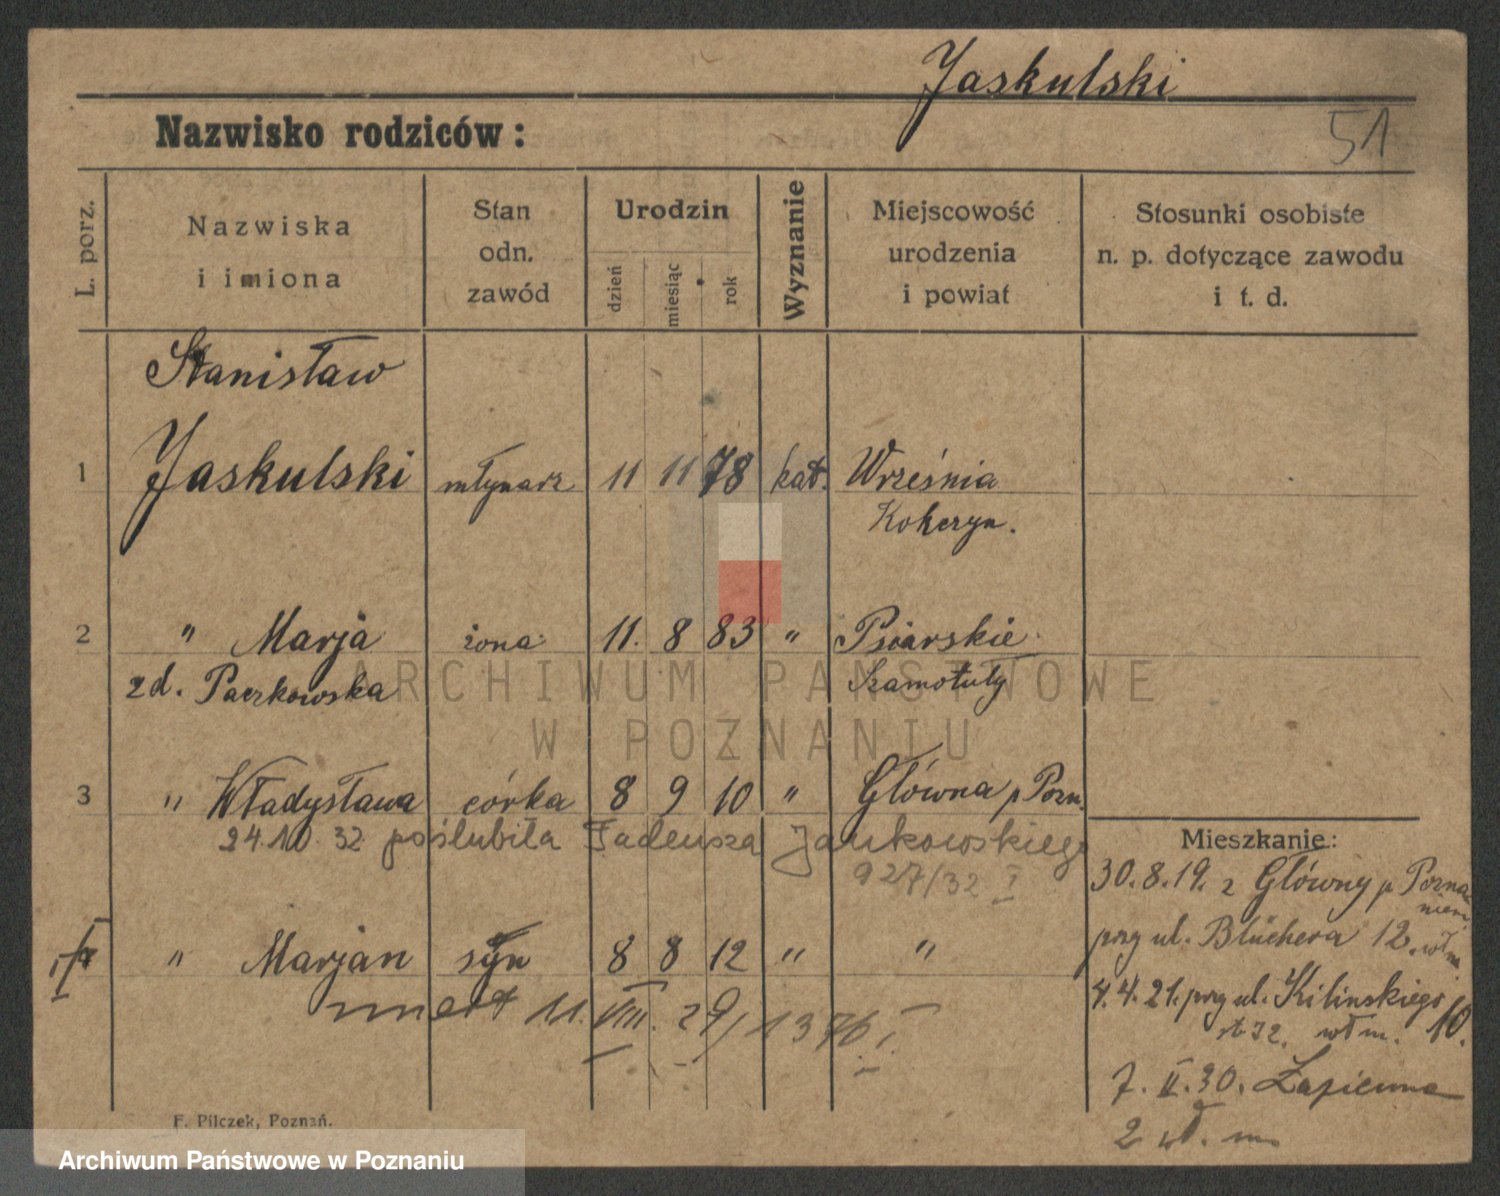 Jaskulski
51
Nazwisko rodziców:
L. porz.
Nazwiska
i imiona
Stan
odn.
zawód
Urodzin
dzień
miesiąc
rok
Wyznanie
Miejscowość
urodzenia
i powiat
Stosunki osobiste
n. p. dotyczące zawodu
i t. d.
Stanisław
1 Jaskulski młynarz 11 11 78 kat. Września
2 " Marja żona 11. 8 83 " Psiarskie
zd. Paczkowska Szamotuły
3 " Władysława córka 8 9 10 " Główna p Pozn.
24.10.32 poślubiła Tadeusza Jankowskiego
927/32 I
" Marjan syn 8 8 12 " "
umarł 11. VIII. 29/1376 I
Mieszkanie:
30.8.19. z Główny p Pozna
niem
przy ul. Blüchera 12. wł m.
4.4.21. przy ul. Kilinskiego 10.
wł m.
7. II. 30. Łazienna
2 wł. m.
F. Pilczek, Poznań.
ARCHIWUM PAŃSTWOWE
W POZNANIU
Archiwum Państwowe w Poznaniu